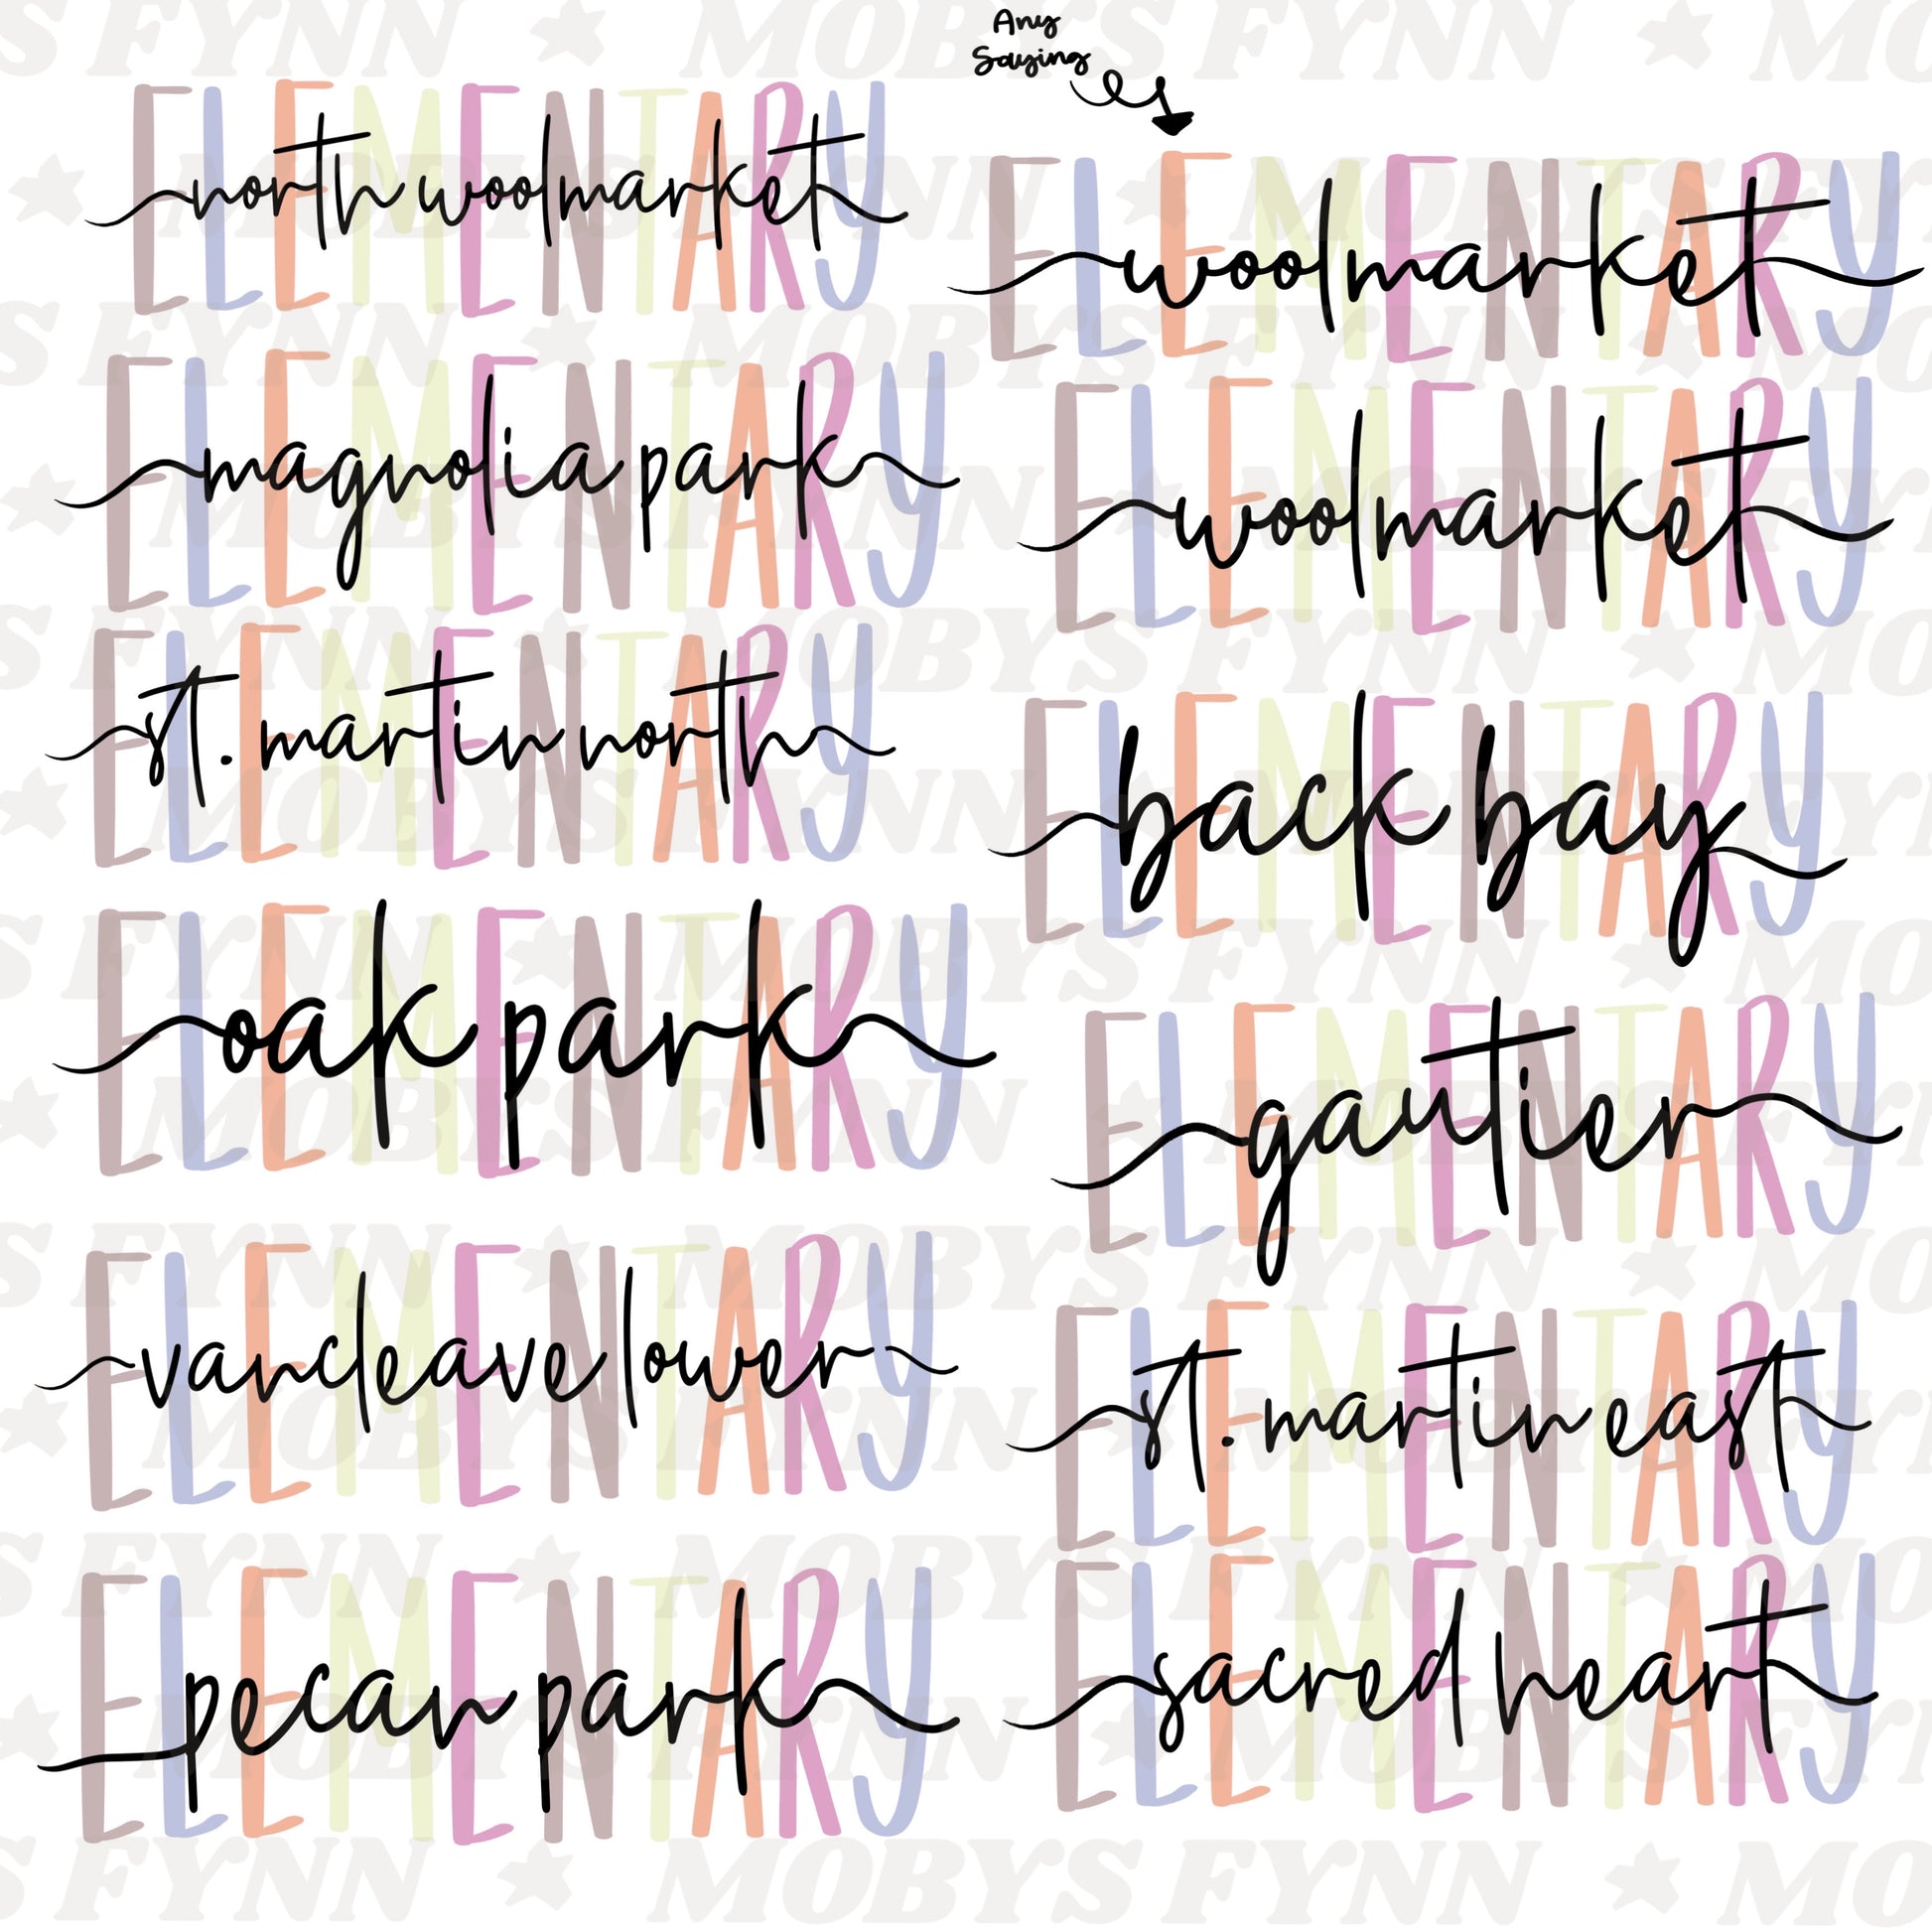 Any
Saying
ELEMENTARY
north woolmarket
ELEMENTARY
magnolia park
ELEMENTARY
st. martin north
ELEMENTARY
oak park
ELEMENTARY
vancleave lower
ELEMENTARY
pecan park
ELEMENTARY
woolmarket
ELEMENTARY
woolmarket
ELEMENTARY
back bay
ELEMENTARY
gautier
ELEMENTARY
st. martin east
ELEMENTARY
sacred heart
MOBYS FYNN